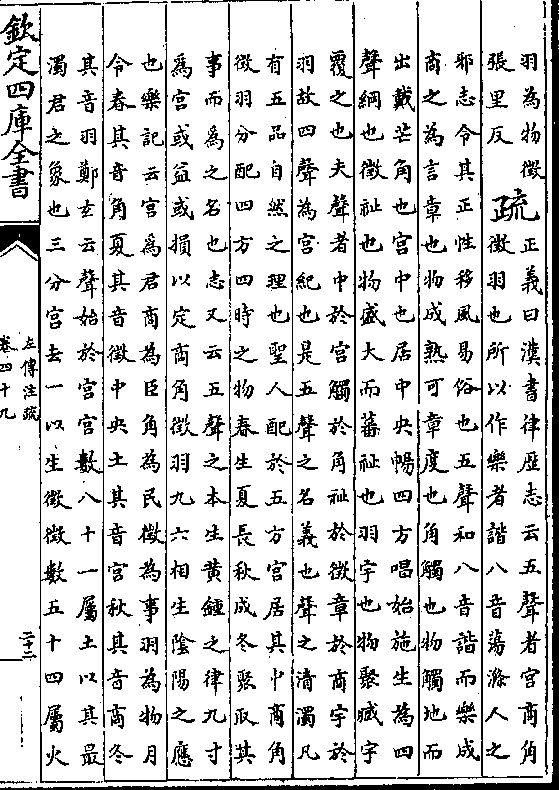 羽為物徵
張里反
疏
正義曰漢書律歴志云五聲者宮商角
徵羽也所以作樂者諧八音蕩滌人之
邪志令其正性移風易俗也五聲和八音諧而樂成
商之為言章也物成熟可章度也角觸也物觸地而
出戴芒角也宮中也居中央暢四方唱始施生為四
聲綱也徵祉也物盛大而蕃祉也羽宇也物聚臧宇
覆之也夫聲者中於宮觸於角祉於徵章於商宇於
羽故四聲為宮紀也是五聲之名義也聲之清濁凡
有五品自然之理也聖人配於五方宮居其中商角
徵羽分配四方四時之物春生夏長秋成冬聚取其
事而為之名也志又云五聲之本生黄鍾之律九寸
為宮或益或損以定商角徵羽九六相生陰陽之應
也樂記云宮為君商為臣角為民徵為事羽為物月
令春其音角夏其音徵中央土其音宮秋其音商冬
其音羽鄭玄云聲始於宮宮數八十一屬土以其最
濁君之象也三分宮去一以生徵徵數五十四屬火
欽定四庫全書
左傳注疏
卷四十九
二十二